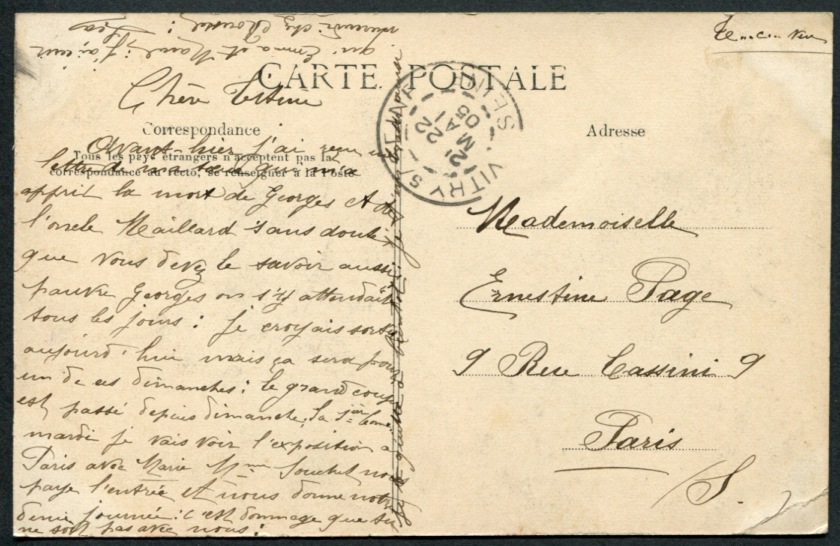 CARTE POSTALE
Correspondance
Tous les pays étrangers n'acceptent pas la
correspondance au recto, se renseigner à la Poste
Adresse
VITRY S/ SEINE
22
MAI
05
Chère Titine
Avant-hier j'ai reçu une
lettre de ma tante qui m'a
apprit la mort de Georges et de
l'oncle Maillard sans doute
que vous devez le savoir aussi
pauvre Georges on s'y attendait
tous les jours: je croyais sortir
aujourd'hui mais ça sera pour
un de ces dimanches: le grand coup
est passé depuis dimanche, la
mardi je vais voir l'exposition à
Paris avec Marie Mme nous
paye l'entrée et nous donne notre
demie journée: c'est dommage que tu
ne sois pas avec nous:
qu'Emma et j'ai
chez
Mademoiselle
Ernestine Page
9 Rue Cassini 9
Paris
/S.